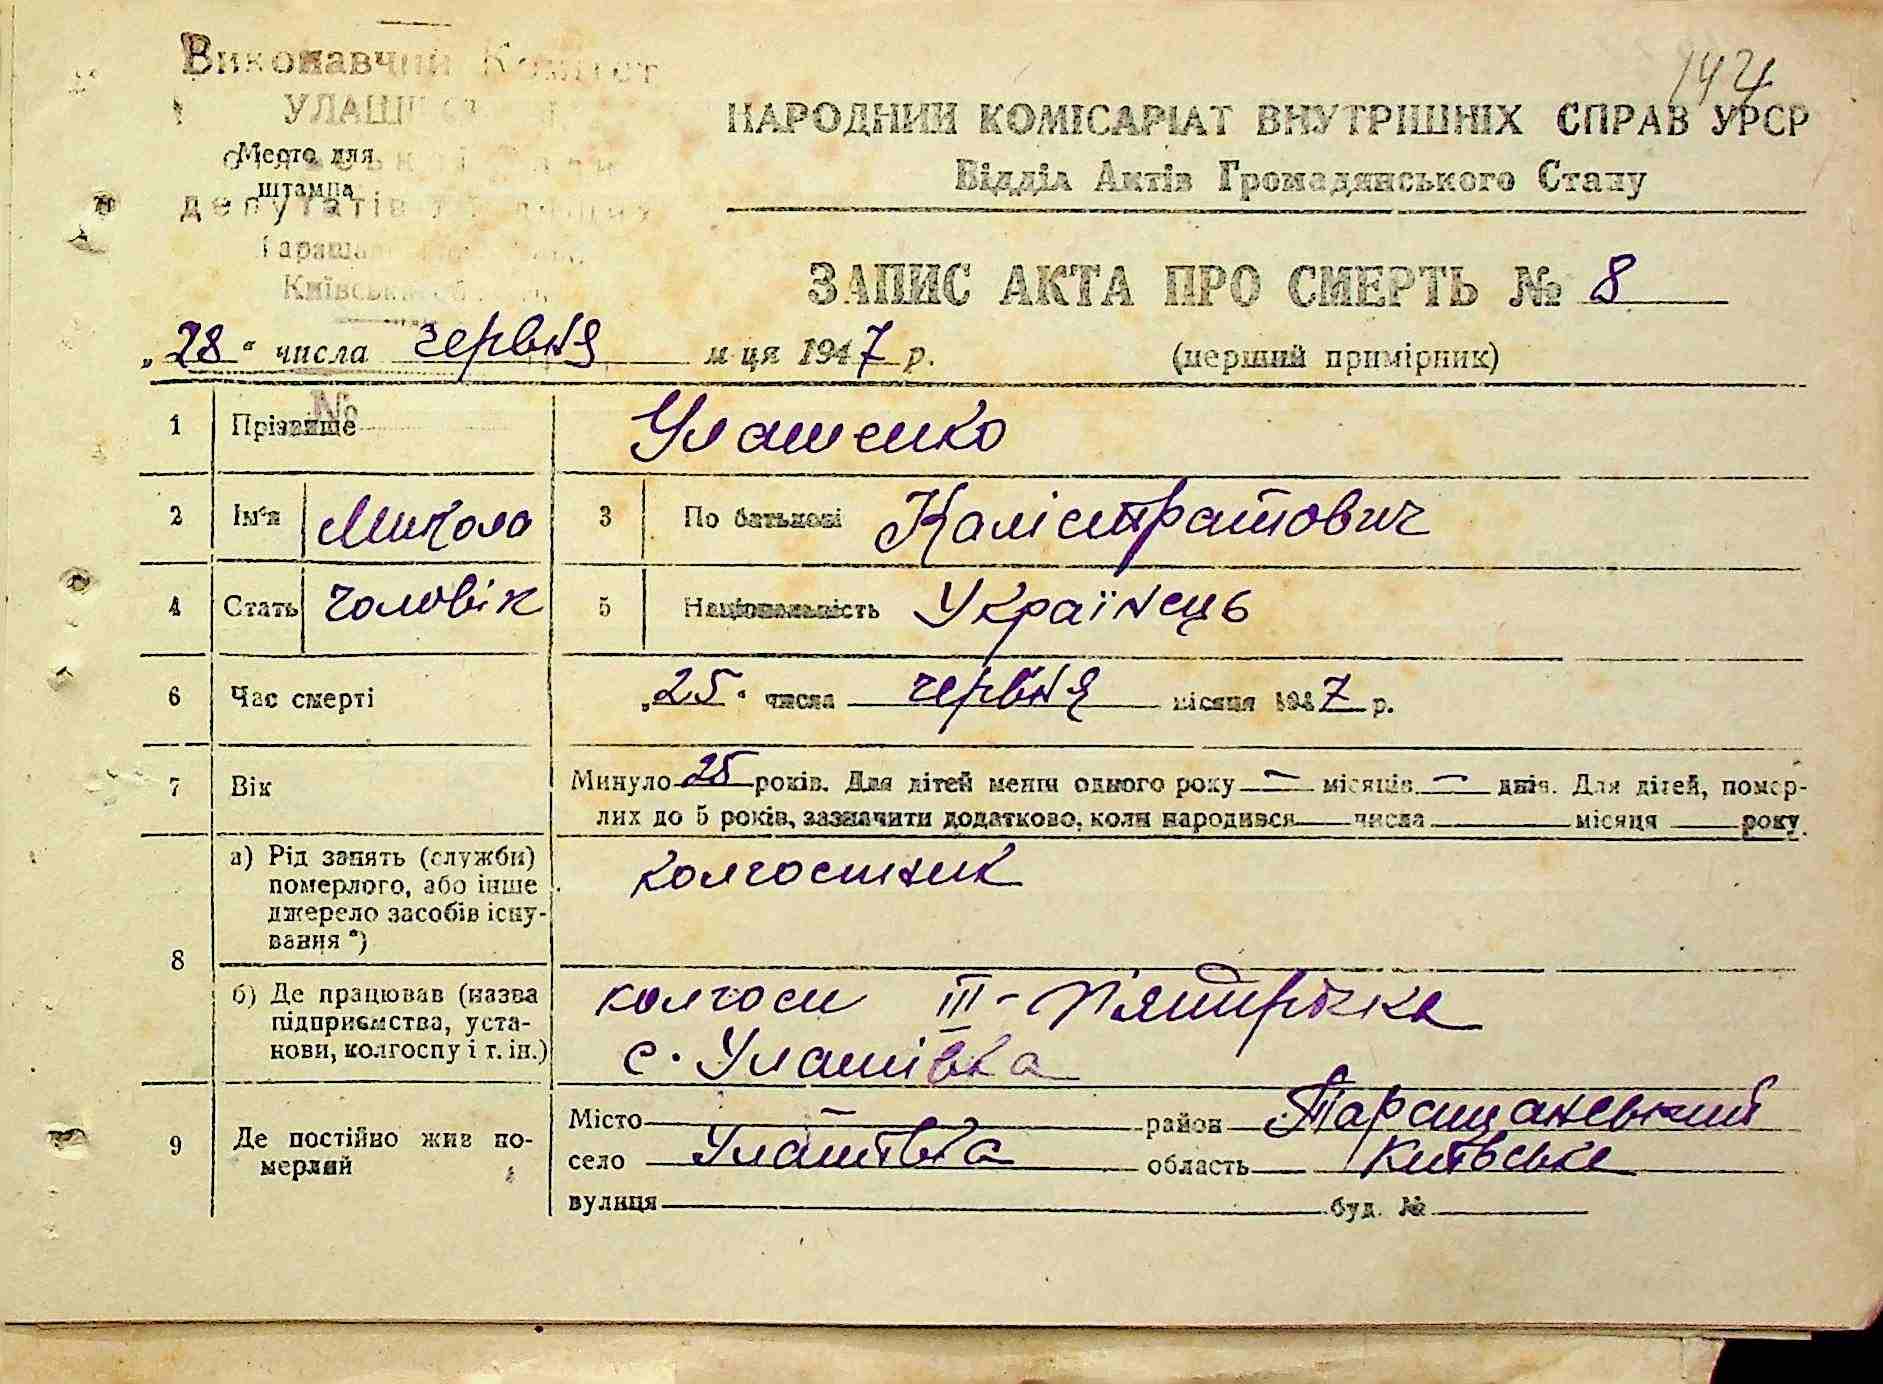 Виконавчий Комітет
УЛАШІВСЬКОЇ
Место для
штампа
депутатів трудящих
Київської області
№
142
НАРОДНИЙ КОМІСАРІАТ ВНУТРІШНІХ СПРАВ УРСР
Відділ Актів Громадянського Стану
ЗАПИС АКТА ПРО СМЕРТЬ № 8
„28“ числа червня м-ця 1947 р. (перший примірник)
1 Прізвище Улашенко
2 Ім'я Микола 3 По батькові Калістратович
4 Стать чоловік 5 Національність Українець
6 Час смерті „25“ числа червня місяця 1947 р.
7 Вік Минуло 25 років. Для дітей менш одного року — місяців — днів. Для дітей, помер-
лих до 5 років, зазначити додатково, коли народився числа місяця року
8 а) Рід занять (служби)
померлого, або інше
джерело засобів існу-
вання *)
колгоспник
б) Де працював (назва
підприємства, уста-
нови, колгоспу і т. ін.)
колгосп ІІІ - П'ятирічка
с. Улашівка
9 Де постійно жив по-
мерлий
Місто — район Таращанський
село Улашівка область Київське
вулиця буд. №